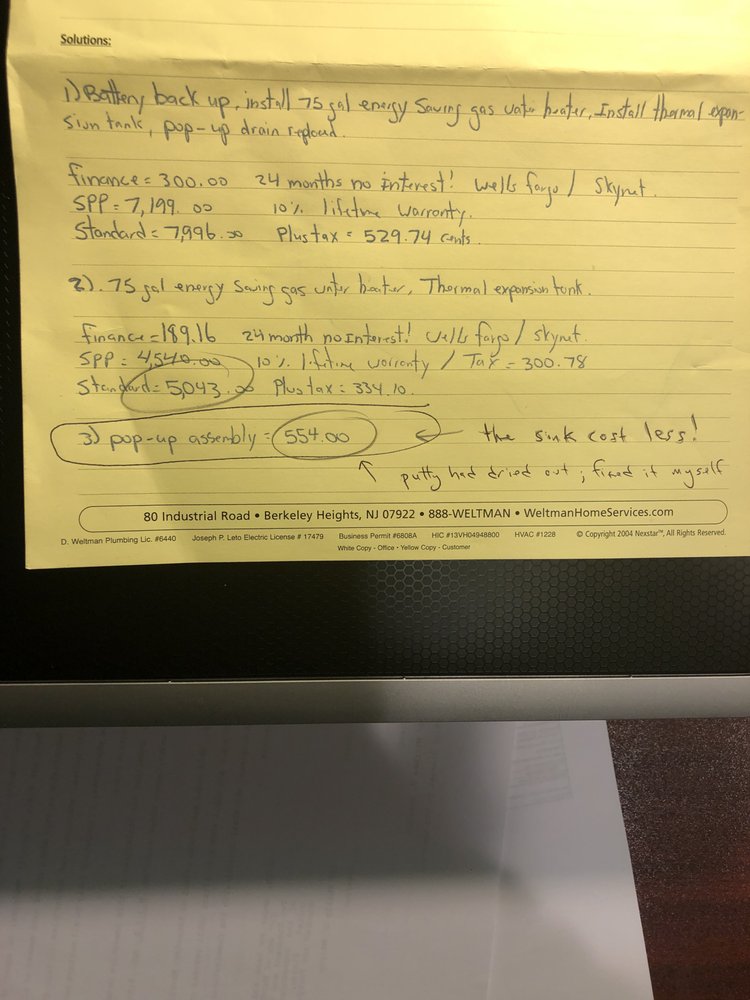 Solutions:
1) Battery back up, install 75 gal energy Saving gas water heater, Install thermal expan-
sion tank, pop-up drain replaced.
finance = 300.00 24 months no interest! wells fargo / Skynet.
SPP = 7,199.00 10% lifetime warranty.
Standard = 7,996.00 Plus tax = 529.74 cents.
2). 75 gal energy Saving gas water heater, Thermal expansion tank.
finance = 189.16 24 month no Interest! wells fargo / skynet.
SPP = 4,540.00 10% lifetime warranty / Tax = 300.78
Standard = 5,043.00 Plus tax = 334.10.
3) pop-up assembly = 554.00 ← the sink cost less!
↑ putty had dried out ; fixed it myself
80 Industrial Road • Berkeley Heights, NJ 07922 • 888-WELTMAN • WeltmanHomeServices.com
D. Weltman Plumbing Lic. #6440 Joseph P. Leto Electric License # 17479 Business Permit #6808A HIC #13VH04948800 HVAC #1228 © Copyright 2004 Nexstar™, All Rights Reserved.
White Copy - Office • Yellow Copy - Customer